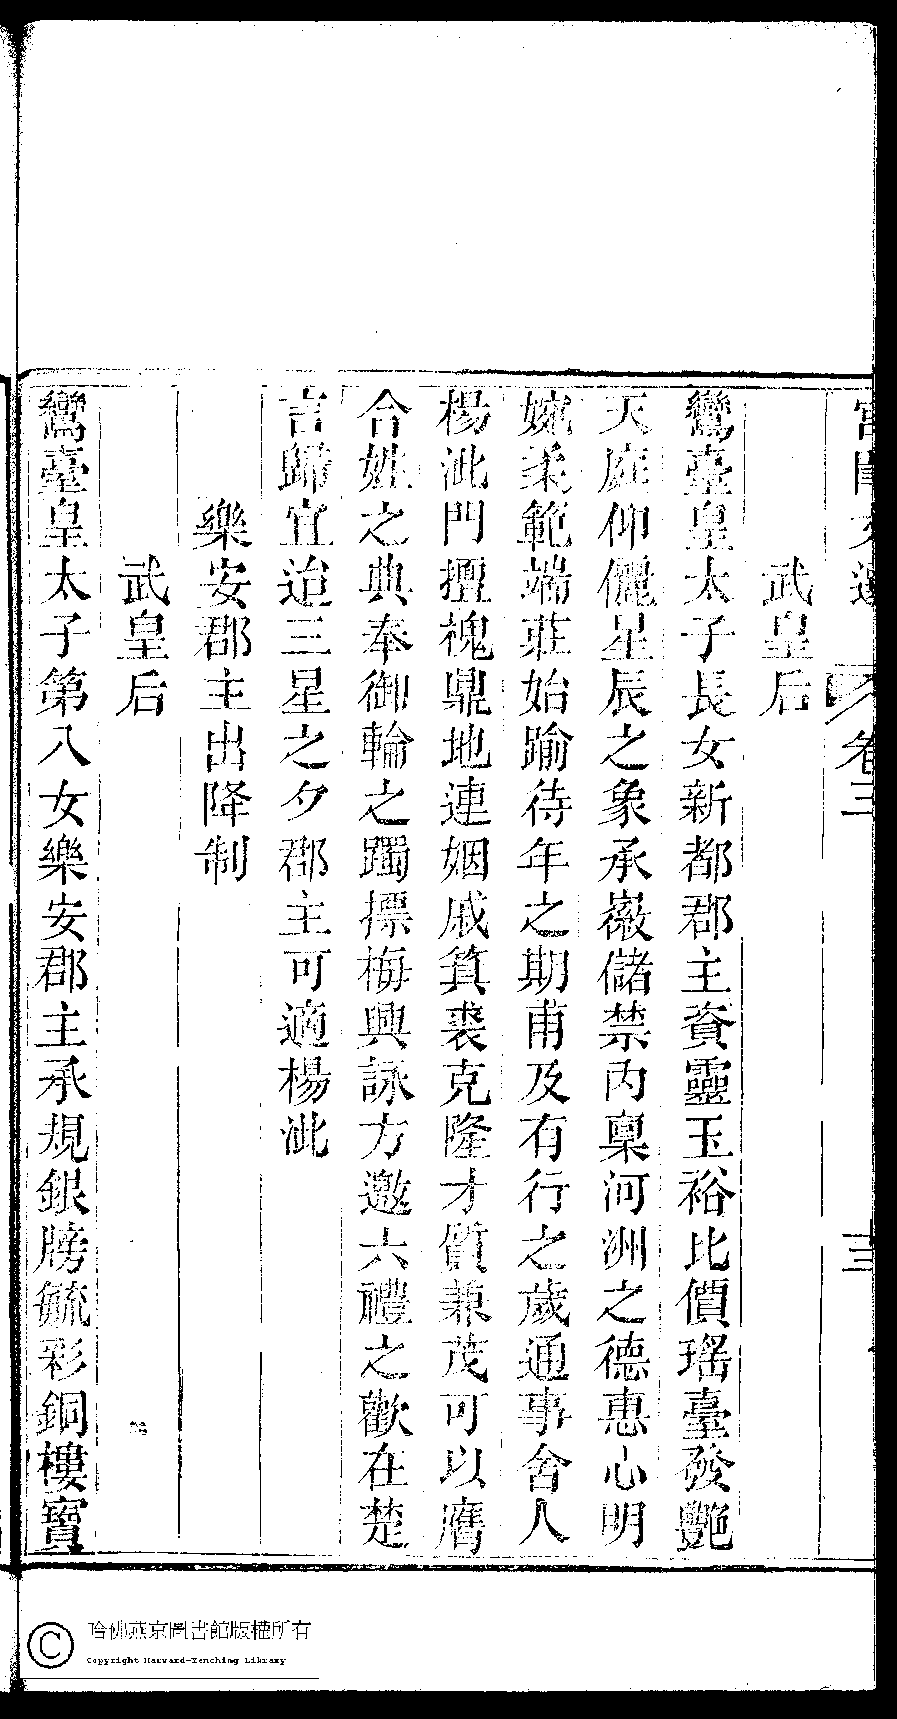 宮閨文選 卷三 三
武皇后
鸞臺皇太子長女新都郡主資靈玉裕比價瑤臺發艷
天庭仰儷星辰之象承嶽儲禁內稟河洲之德惠心明
婉柔範端莊始踰待年之期甫及有行之歲通事舍人
楊泚門擅槐鼎地連姻戚箕裘克隆才質兼茂可以膺
合姓之典奉御輪之躅摽梅興詠方邀六禮之歡在楚
言歸宜迨三星之夕郡主可適楊泚
樂安郡主出降制
武皇后
鸞臺皇太子第八女樂安郡主承規銀牓毓彩銅樓寶
哈佛燕京圖書館版權所有
Copyright Harvard-Yenching Library